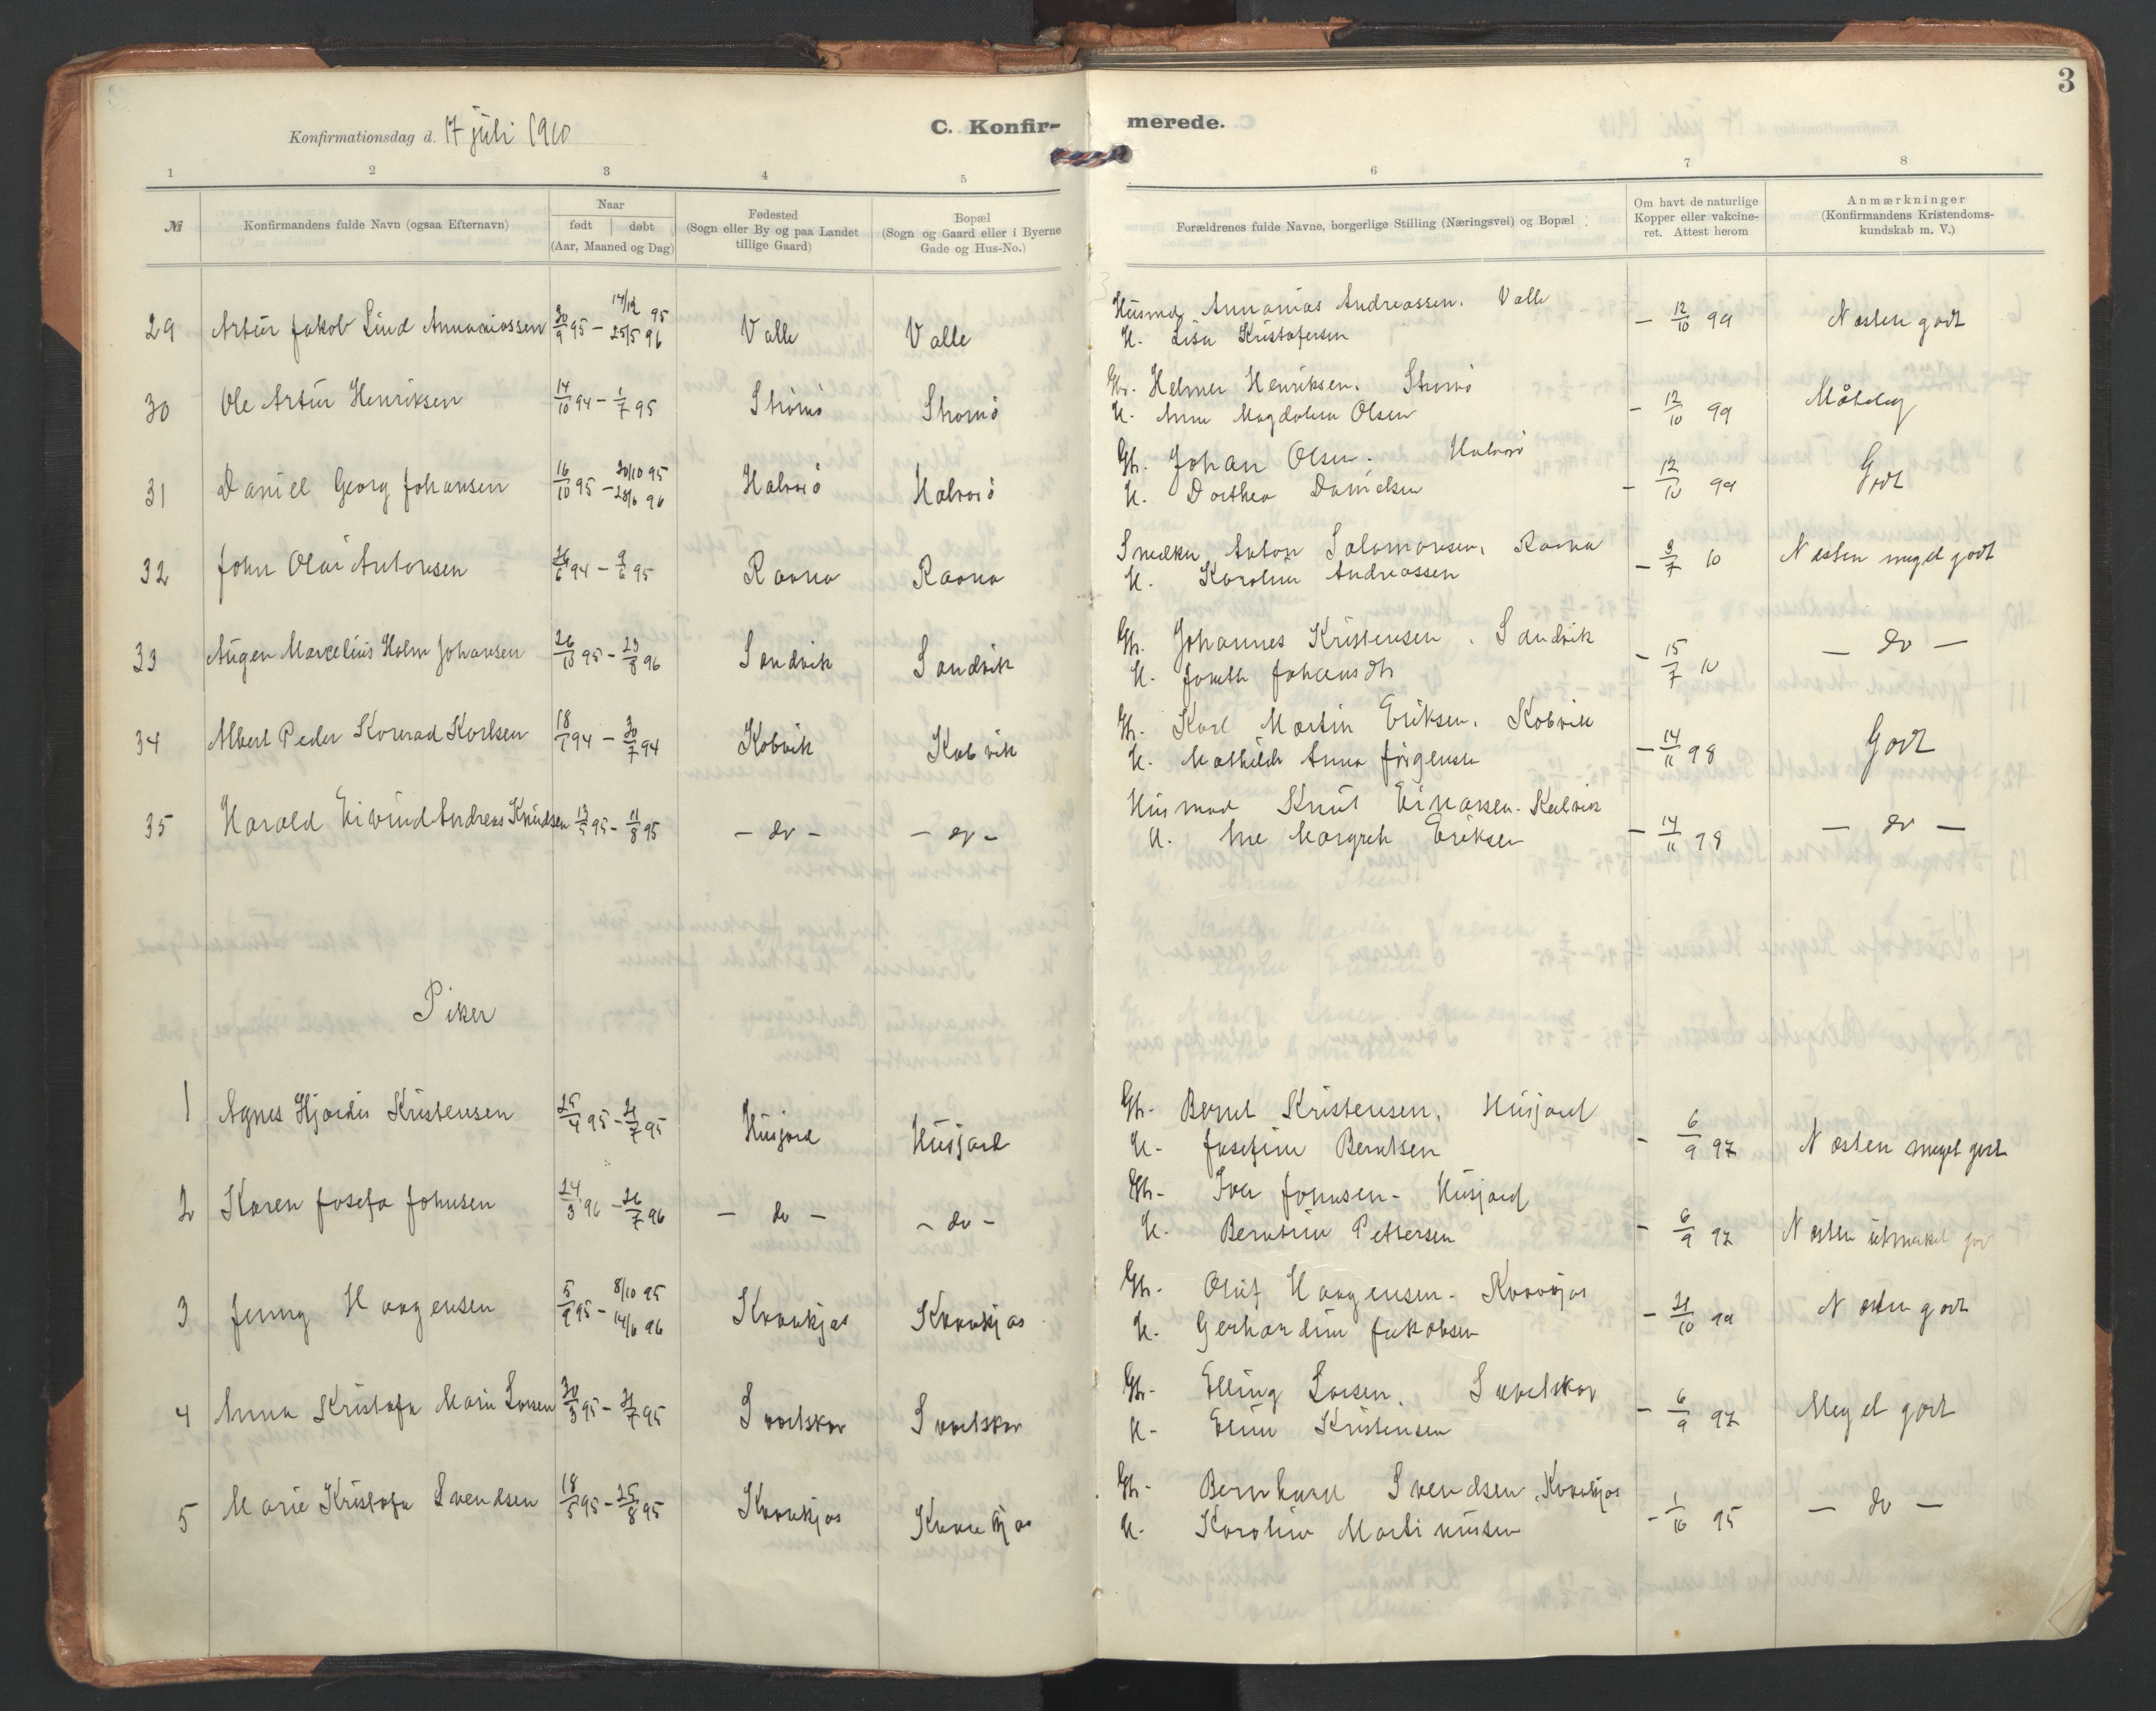 3
Konfirmationsdag d. 17 juli 1910
C. Konfir-
merede.
1 2 3 4 5 6 7 8
№
Konfirmandens fulde Navn (ogsaa Efternavn)
Naar
født | døbt
(Aar, Maaned og Dag)
Fødested
(Sogn eller By og paa Landet
tillige Gaard)
Bopæl
(Sogn og Gaard eller i Byerne
Gade og Hus-No.)
Forældrenes fulde Navne, borgerlige Stilling (Næringsvei) og Bopæl
Om havt de naturlige
Kopper eller vakcine-
ret. Attest herom
Anmærkninger
(Konfirmandens Kristendoms-
kundskab m. V.)
29 Artur Jakob Lind Annaniassen 30/9 95 – 14/12 95 25/5 96 Valle Valle
Husmd Annanias Andreassen. Valle
H. Lisa Kristofersen
– 12/10 99 Næsten godt
30 Ole Artur Henriksen 14/10 94 – 1/7 95 Strømö Strömö
Gbr. Helmer Henriksen. Strömö
H. Anne Magdalena Olsen
– 12/10 99 Måtelig
31 Daniel Georg Johansen 16/10 95 – 20/10 95 28/6 96 Halvorö Halvorö
Gbr. Johan Olsen. Halvorö
H. Dorthea Danielsen
– 12/10 99 Godt
32 John Olai Antonsen 26/6 94 – 9/6 95 Raana Raana
Snedker Anton Salamonsen. Raana
H. Karoline Andreassen
– 9/7 10 Næsten meget godt
33 Augen Marcelius Holm Johansen 26/10 95 – 23/8 96 Sandvik Sandvik
Gbr. Johannes Kristensen. Sandvik
H. Joneth Johansdtr
– 15/7 10 – do –
34 Albert Peder Konrad Karlsen 18/1 94 – 30/7 94 Kobvik Kobvik
Gbr. Karl Martin Eriksen. Kobvik
H. Mathilde Anna Jörgensen
– 14/11 98 Godt
35 Harald Eivind Andreas Knudsen 13/5 95 – 11/8 95 – do – – do –
Husmand Knut Einarsen. Kobvik
H. Ane Margreth Eriksen
– 14/11 98 – do –
Piker
1 Agnes Hjördis Kristensen 25/4 95 – 21/7 95 Husjord Husjord
Gbr. Bernt Kristensen. Husjord
H. Josefine Berntsen
– 6/9 97 Næsten meget godt
2 Karen Josefa Johnsen 24/3 96 – 26/7 96 – do – – do –
Gbr. Iver Johnsen – Husjord
H. Berntine Pettersen
– 6/9 97 Næsten utmerket god
3 Jenny Haagensen 5/9 95 – 8/10 95 14/6 96 Kvankjos Kvankjos
Gbr. Oluf Haagensen – Kvankjos
H. Gerhardine Jakobsen
– 21/10 99 Næsten godt
4 Anna Kristofa Marie Larsen 30/3 95 – 21/7 95 Svartskar Svartskar
Gbr. Elling Larsen. Svartskar
H. Eline Kristensen
– 6/9 97 Meget godt
5 Marie Kristofa Svendsen 18/5 95 – 25/8 95 Kvankjos Kvankjos
Gbr. Bernhard Svendsen, Kvankjos
H. Karoline Martinussen
– 1/10 95 – do –